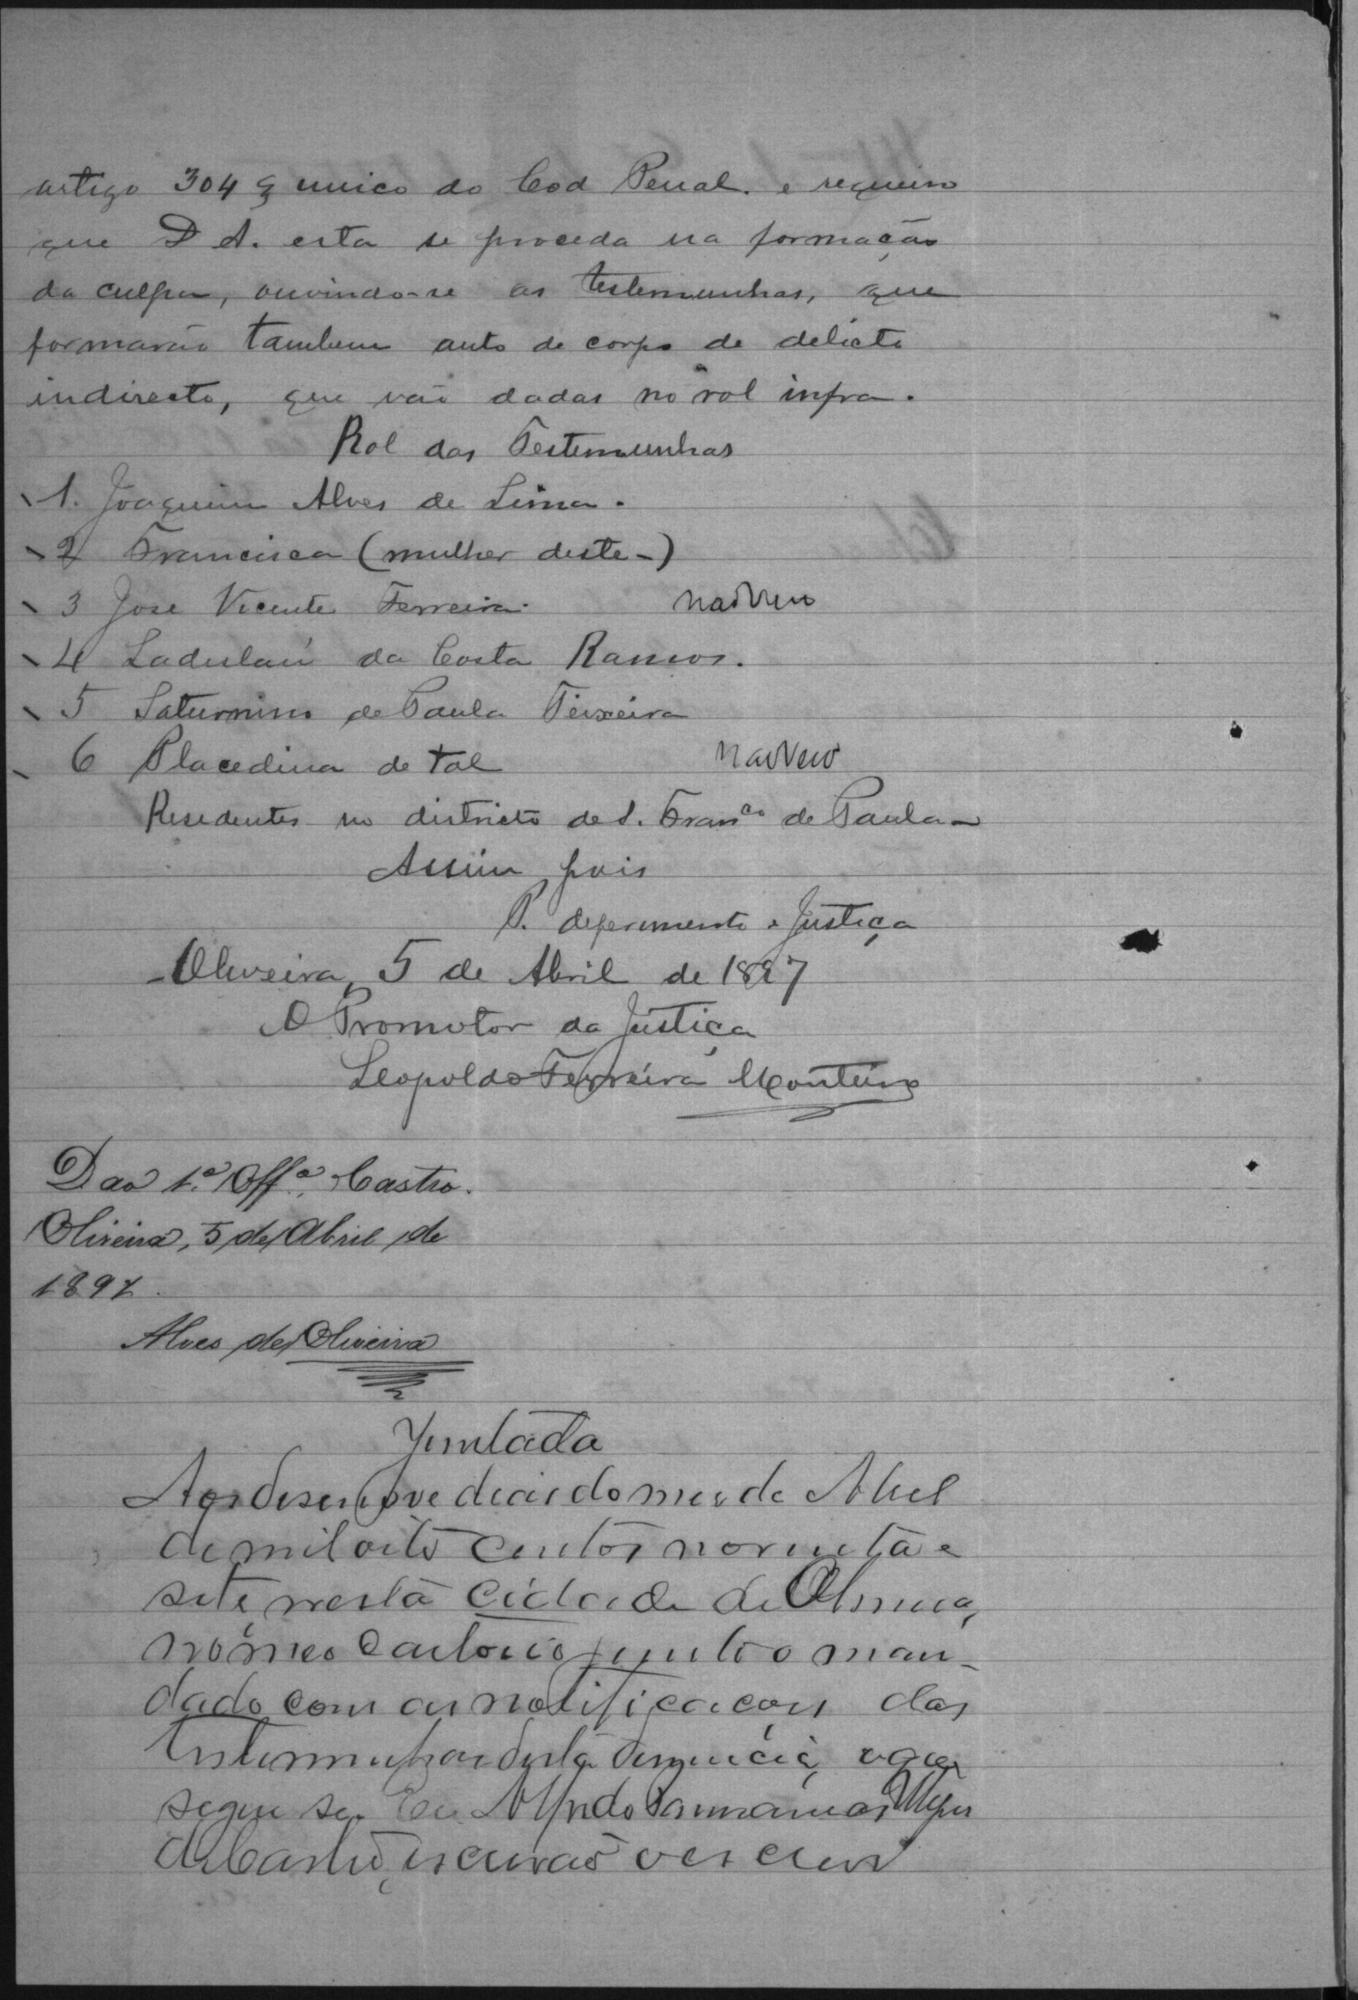 artigo 304 § unico do Cod Penal. e requeiro
que D A. esta se proceda na formação
da culpa, ouvindo-se as testemunhas, que
formarão tambem auto de corpo de delicto
indirecto, que vão dadas no rol infra.
Rol das Testemunhas
1. Joaquim Alves de Lima.
2 Francisca (mulher deste-)
3 Jose Vicente Ferreira. não veio
4 Ladislau da Costa Ramos.
5 Saturnino de Paula Teixeira
6 Placedina de tal não veio
Resedentes no districto de S. Franco de Paula-
Assim pois
P. deferimento e Justiça
Oliveira, 5 de Abril de 1897
O Promotor da Justiça
Leopoldo Ferreira Monteiro
D ao 1.º Offº. Castro.
Oliveira, 5 de Abril de
1897.
Alves de Oliveira
Juntada
Aos desenove dias do mes de Abril
de mil oito centos noventa e
sete nesta cidade de Oliveira,
no meo Cartorio junto o man-
dado com as notificacois das
testemunhas desta denuncia, o que
segue se. Eu
de Castro, escrivão o escrevi